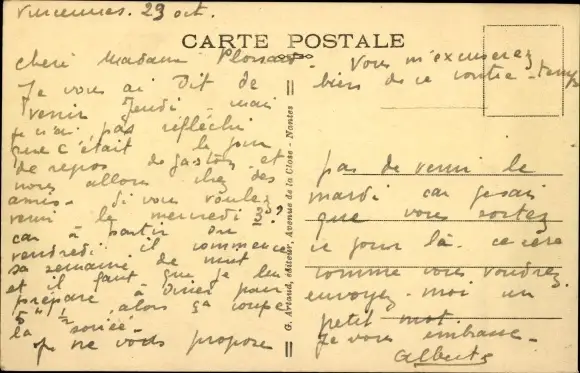 Vincennes. 23 oct.
CARTE POSTALE
chere Madame
Je vous ai dit de
venir Jeudi - mais
je n'ai pas réfléchi
que c'était le jour
de repos de gaston et
nous allons chez des
amis - si vous voulez
venir le mercredi ?
car à partir du
vendredi il commence
sa semaine de nuit
et il faut que je lui
prépare à diner pour
5 h 1/2 alors ça coupe
la soirée -
je ne vous propose
G. Artaud, éditeur, Avenue de la Close - Nantes
Vous m'excuserez
bien de ce contre-temps
pas de venir le
mardi car je sais
que vous sortez
ce jour là. ce sera
comme vous voudrez.
envoyez-moi un
petit mot.
Je vous embrasse -
Alberte